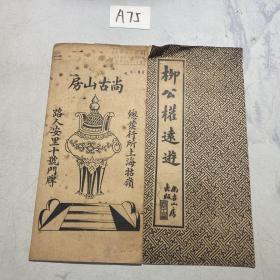 A75
房山古尚
總發行所上海牯嶺
路人安里十號門牌
柳公權遠遊
尚古山房
出版